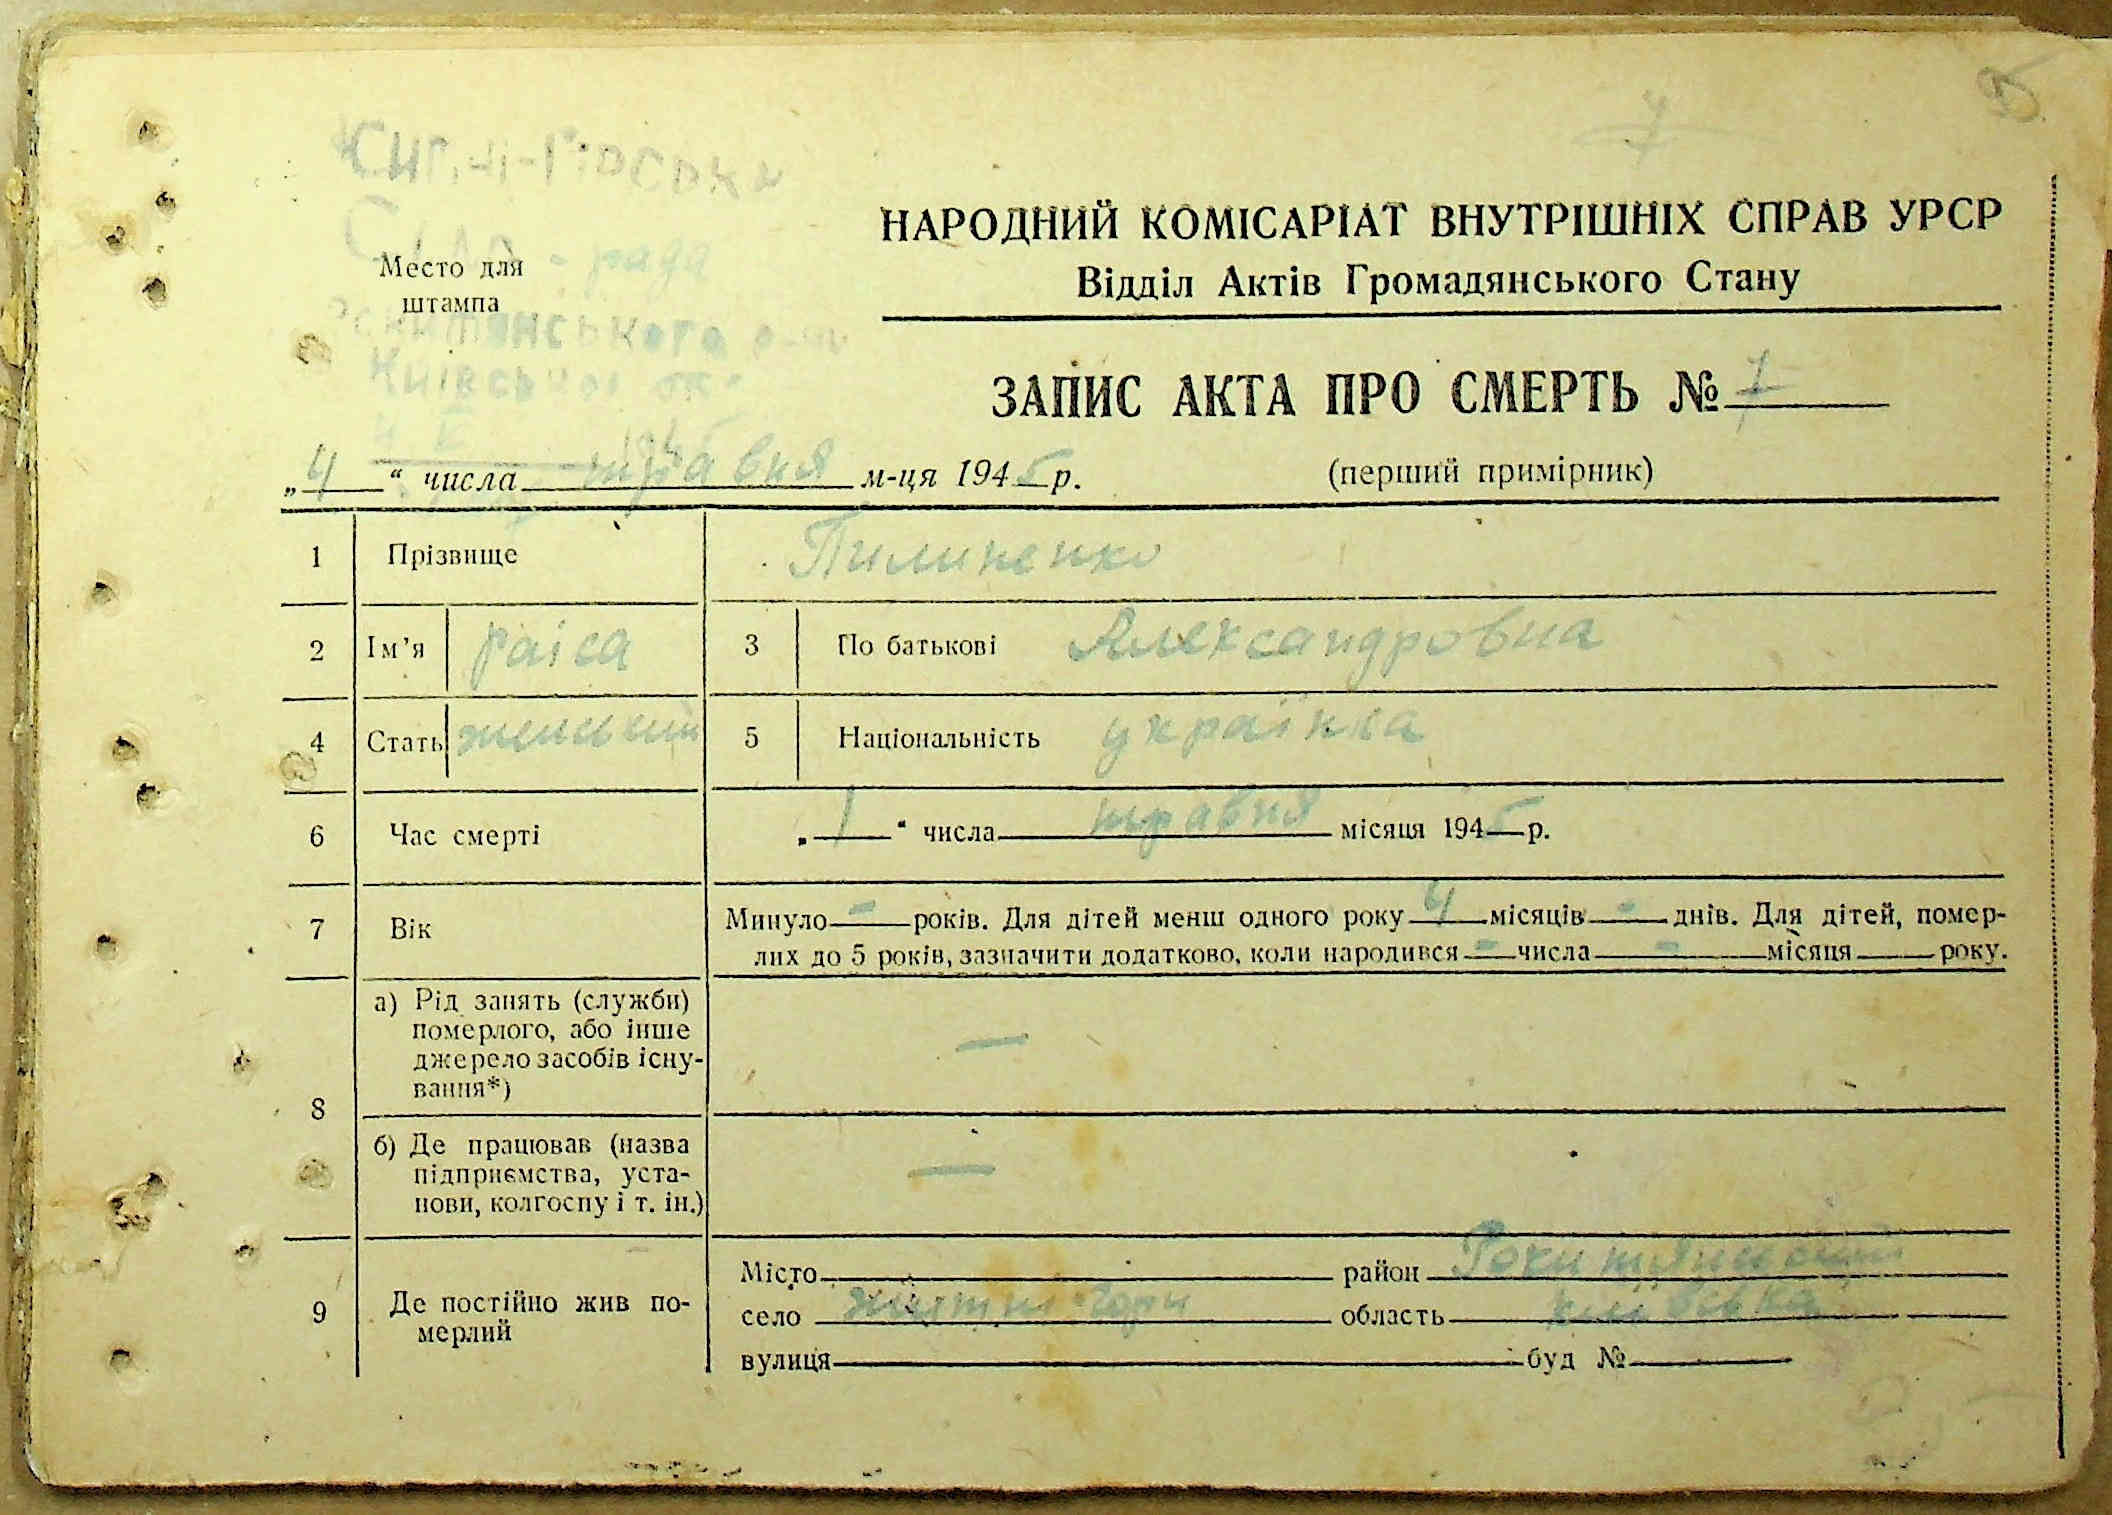 7
рада
Київської
Место для
штампа
НАРОДНИЙ КОМІСАРІАТ ВНУТРІШНІХ СПРАВ УРСР
Відділ Актів Громадянського Стану
ЗАПИС АКТА ПРО СМЕРТЬ № 7
„4“ числа травня м-ця 1945 р.
(перший примірник)
1 Прізвище Пилипенко
2 Ім’я Раіса 3 По батькові Александровна
4 Стать женский 5 Національність українка
6 Час смерті „1“ числа травня місяця 1945 р.
7 Вік Минуло - років. Для дітей менш одного року 4 місяців - днів. Для дітей, помер-
лих до 5 років, зазначити додатково, коли народився - числа - місяця року.
8 а) Рід занять (служби)
померлого, або інше
джерело засобів існу-
вання*) —
б) Де працював (назва
підприємства, уста-
нови, колгоспу і т. ін.) —
9 Де постійно жив по-
мерлий
Місто район
село Житні-Гори область
вулиця буд №